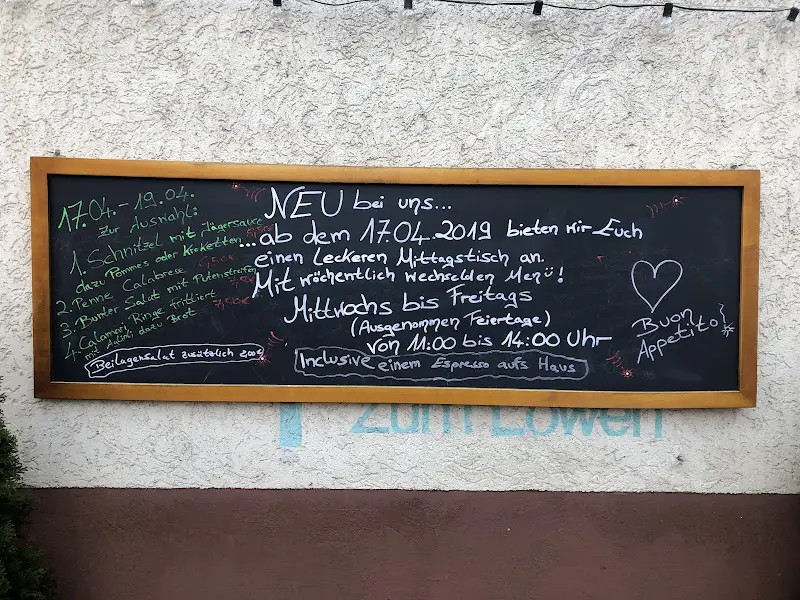 17.04. - 19.04.
Zur Auswahl:
1. Schnitzel mit Jägersauce
dazu Pommes oder Kroketten
2. Penne Calabrese
3. Bunter Salat mit Putenstreifen
4. Calamari Ringe frittiert
mit dazu Brot
Beilagensalat zusätzlich 2,00€
NEU bei uns...
...ab dem 17.04.2019 bieten wir Euch
einen leckeren Mittagstisch an.
Mit wöchentlich wechselden Menü!
Mittwochs bis Freitags
(Ausgenommen Feiertage)
von 11:00 bis 14:00 Uhr
Inclusive einem Espresso aufs Haus
Buon
Appetito!
Zum Löwen